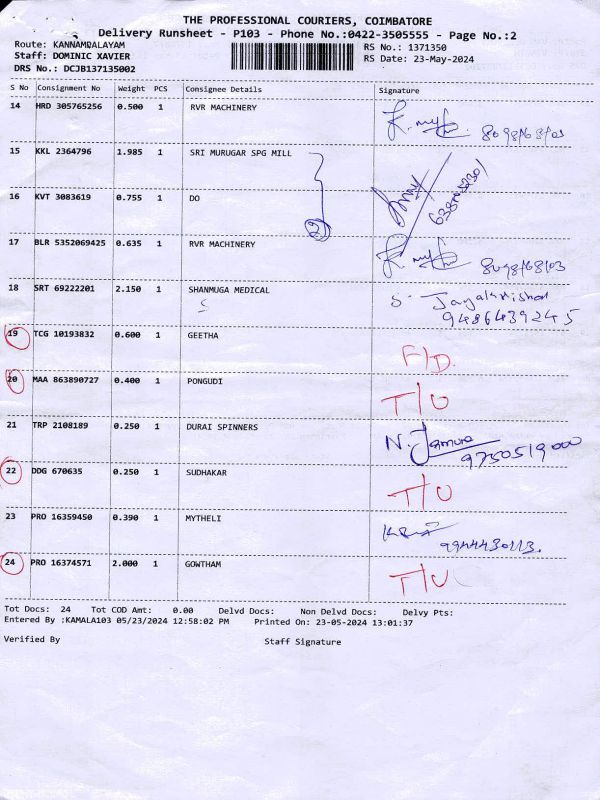 THE PROFESSIONAL COURIERS, COIMBATORE
Delivery Runsheet - P103 - Phone No.:0422-3505555 - Page No.:2
Route: KANNAMPALAYAM RS No.: 1371350
Staff: DOMINIC XAVIER RS Date: 23-May-2024
DRS No.: DCJB137135002
S No Consignment No Weight PCS Consignee Details Signature
14 HRD 305765256 0.500 1 RVR MACHINERY
15 KKL 2364796 1.985 1 SRI MURUGAR SPG MILL
16 KVT 3083619 0.755 1 DO 2
17 BLR 5352069425 0.635 1 RVR MACHINERY
18 SRT 69222201 2.150 1 SHANMUGA MEDICAL S.
9486439245
19 TCG 10193832 0.600 1 GEETHA F/D.
20 MAA 863890727 0.400 1 PONGUDI T/U
21 TRP 2108189 0.250 1 DURAI SPINNERS N.
9750519000
22 DDG 670635 0.250 1 SUDHAKAR T/U
23 PRO 16359450 0.390 1 MYTHELI
24 PRO 16374571 2.000 1 GOWTHAM T/U
Tot Docs: 24 Tot COD Amt: 0.00 Delvd Docs: Non Delvd Docs: Delvy Pts:
Entered By :KAMALA103 05/23/2024 12:58:02 PM Printed On: 23-05-2024 13:01:37
Verified By Staff Signature